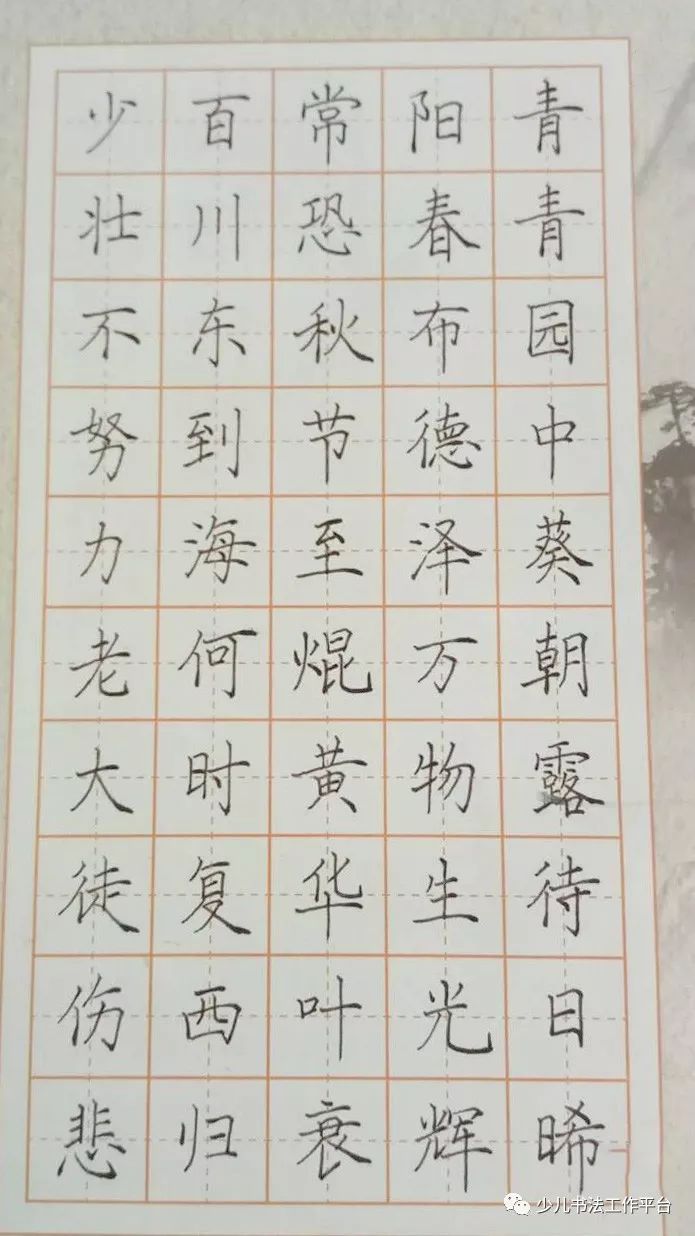 青青园中葵朝露待日晞
阳春布德泽万物生光辉
常恐秋节至焜黄华叶衰
百川东到海何时复西归
少壮不努力老大徒伤悲
少儿书法工作平台